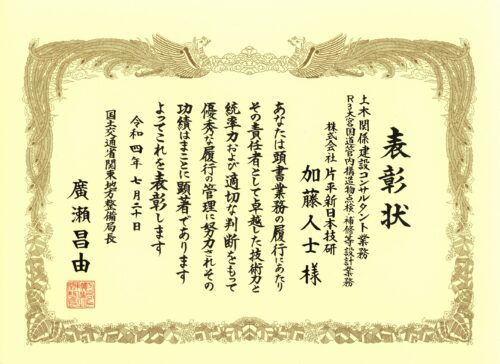 表彰状
土木関係建設コンサルタント業務
R3大宮国道管内構造物点検・補修等設計業務
株式会社 片平新日本技研
加藤人士 様
あなたは頭書業務の履行にあたり
その責任者として卓越した技術力と
統率力および適切な判断をもって
優秀な履行の管理に努力されその
功績はまことに顕著であります
よってこれを表彰します
令和四年七月二十日
国土交通省関東地方整備局長
廣瀬昌由